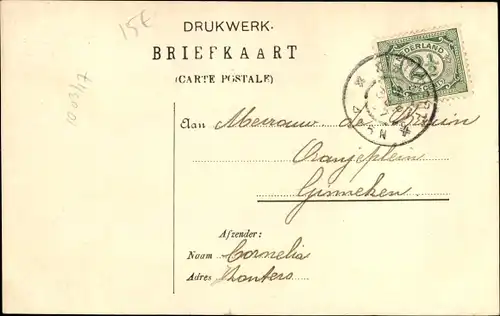 15€
DRUKWERK.
BRIEFKAART
(CARTE POSTALE)
NEDERLAND
10 03/17
Aan Mevrouw de Bruin
Oranjeplein
Ginneken
Afzender:
Naam Cornelia
Adres Wouters